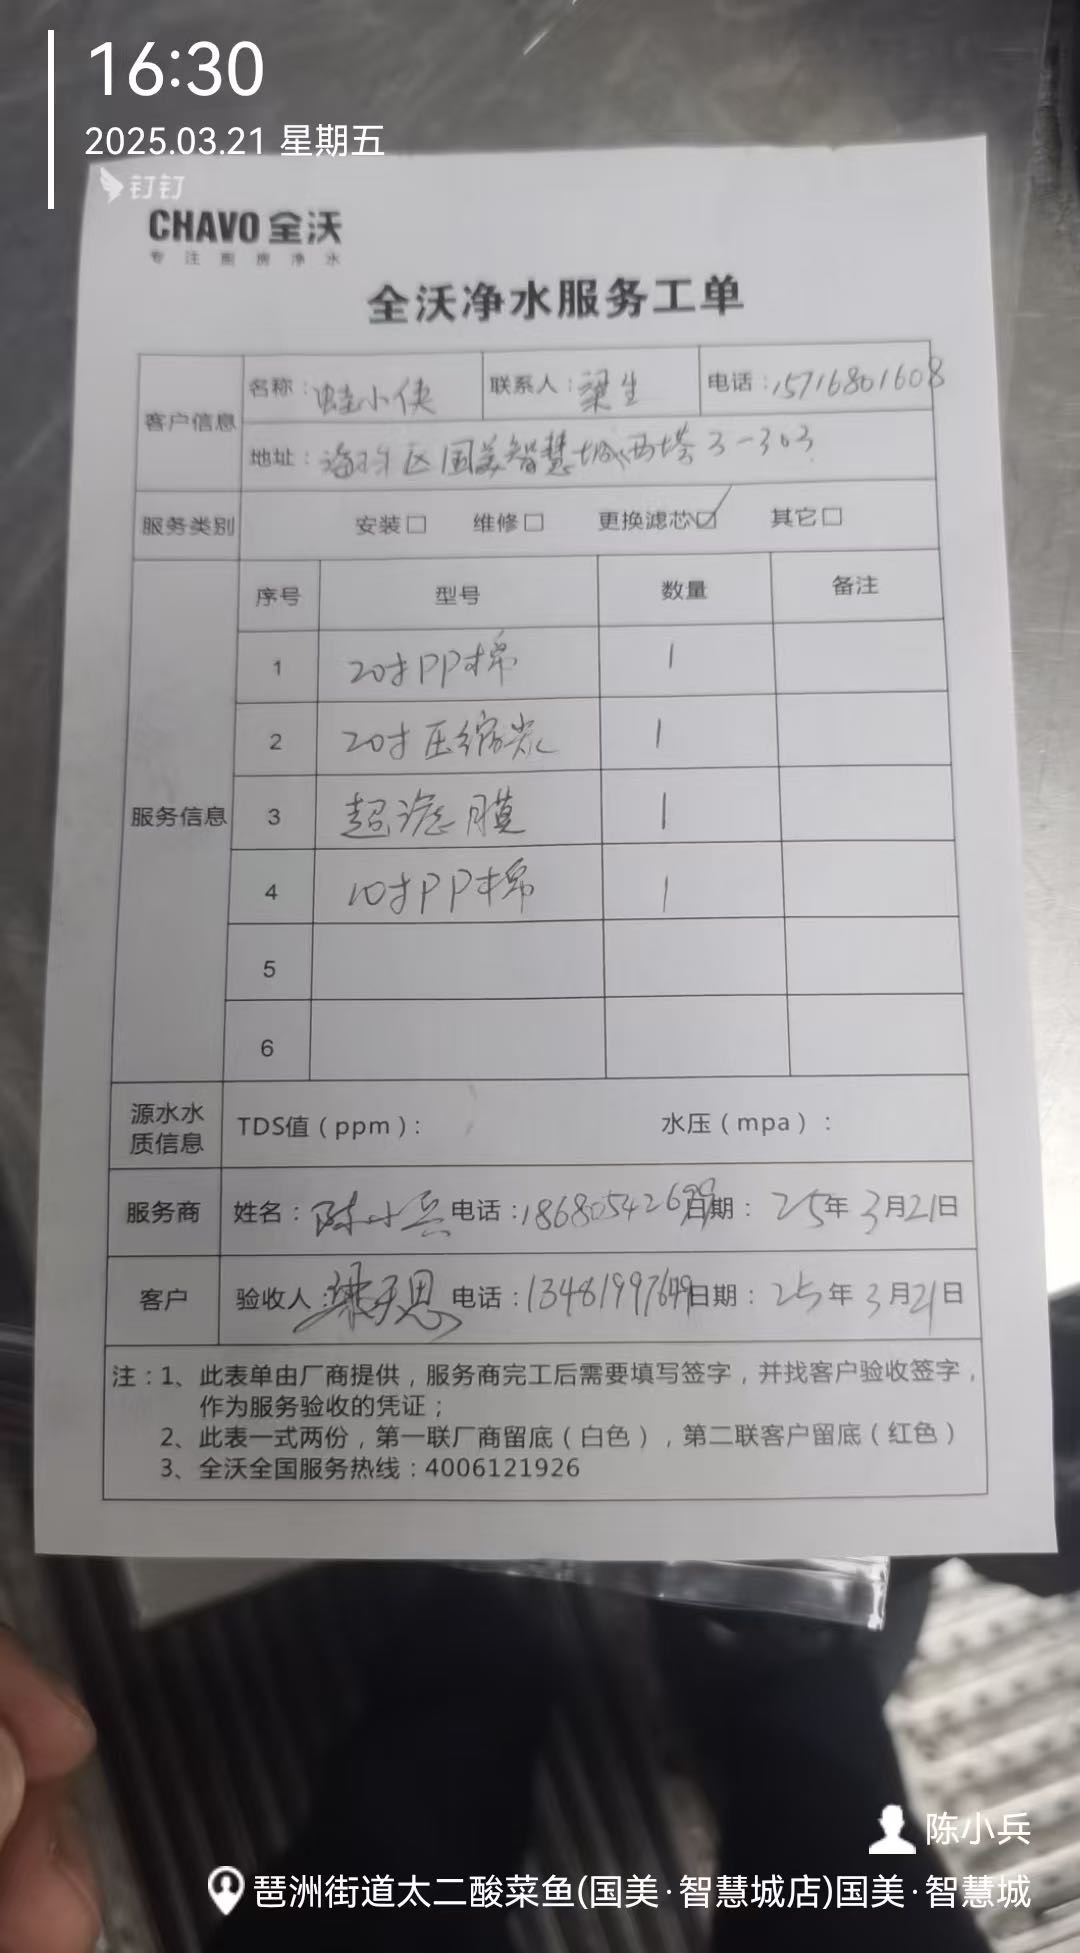 16:30
2025.03.21 星期五
钉钉
CHAVO 全沃
专注厨房净水
全沃净水服务工单
客户信息 名称：蛙小侠 联系人：梁生 电话：15716801608
地址：海珠区国美智慧城西塔3-303
服务类别 安装□ 维修□ 更换滤芯☑ 其它□
服务信息 序号 型号 数量 备注
1 20寸PP棉 1
2 20寸压缩炭 1
3 超滤膜 1
4 10寸PP棉 1
5
6
源水水质信息 TDS值（ppm）： 水压（mpa）：
服务商 姓名：陈小兵 电话：186805426 日期：25年3月21日
客户 验收人：梁 思 电话：134819976 日期：25年3月21日
注：1、此表单由厂商提供，服务商完工后需要填写签字，并找客户验收签字，
作为服务验收的凭证；
2、此表一式两份，第一联厂商留底（白色），第二联客户留底（红色）
3、全沃全国服务热线：4006121926
陈小兵
琶洲街道太二酸菜鱼(国美·智慧城店)国美·智慧城